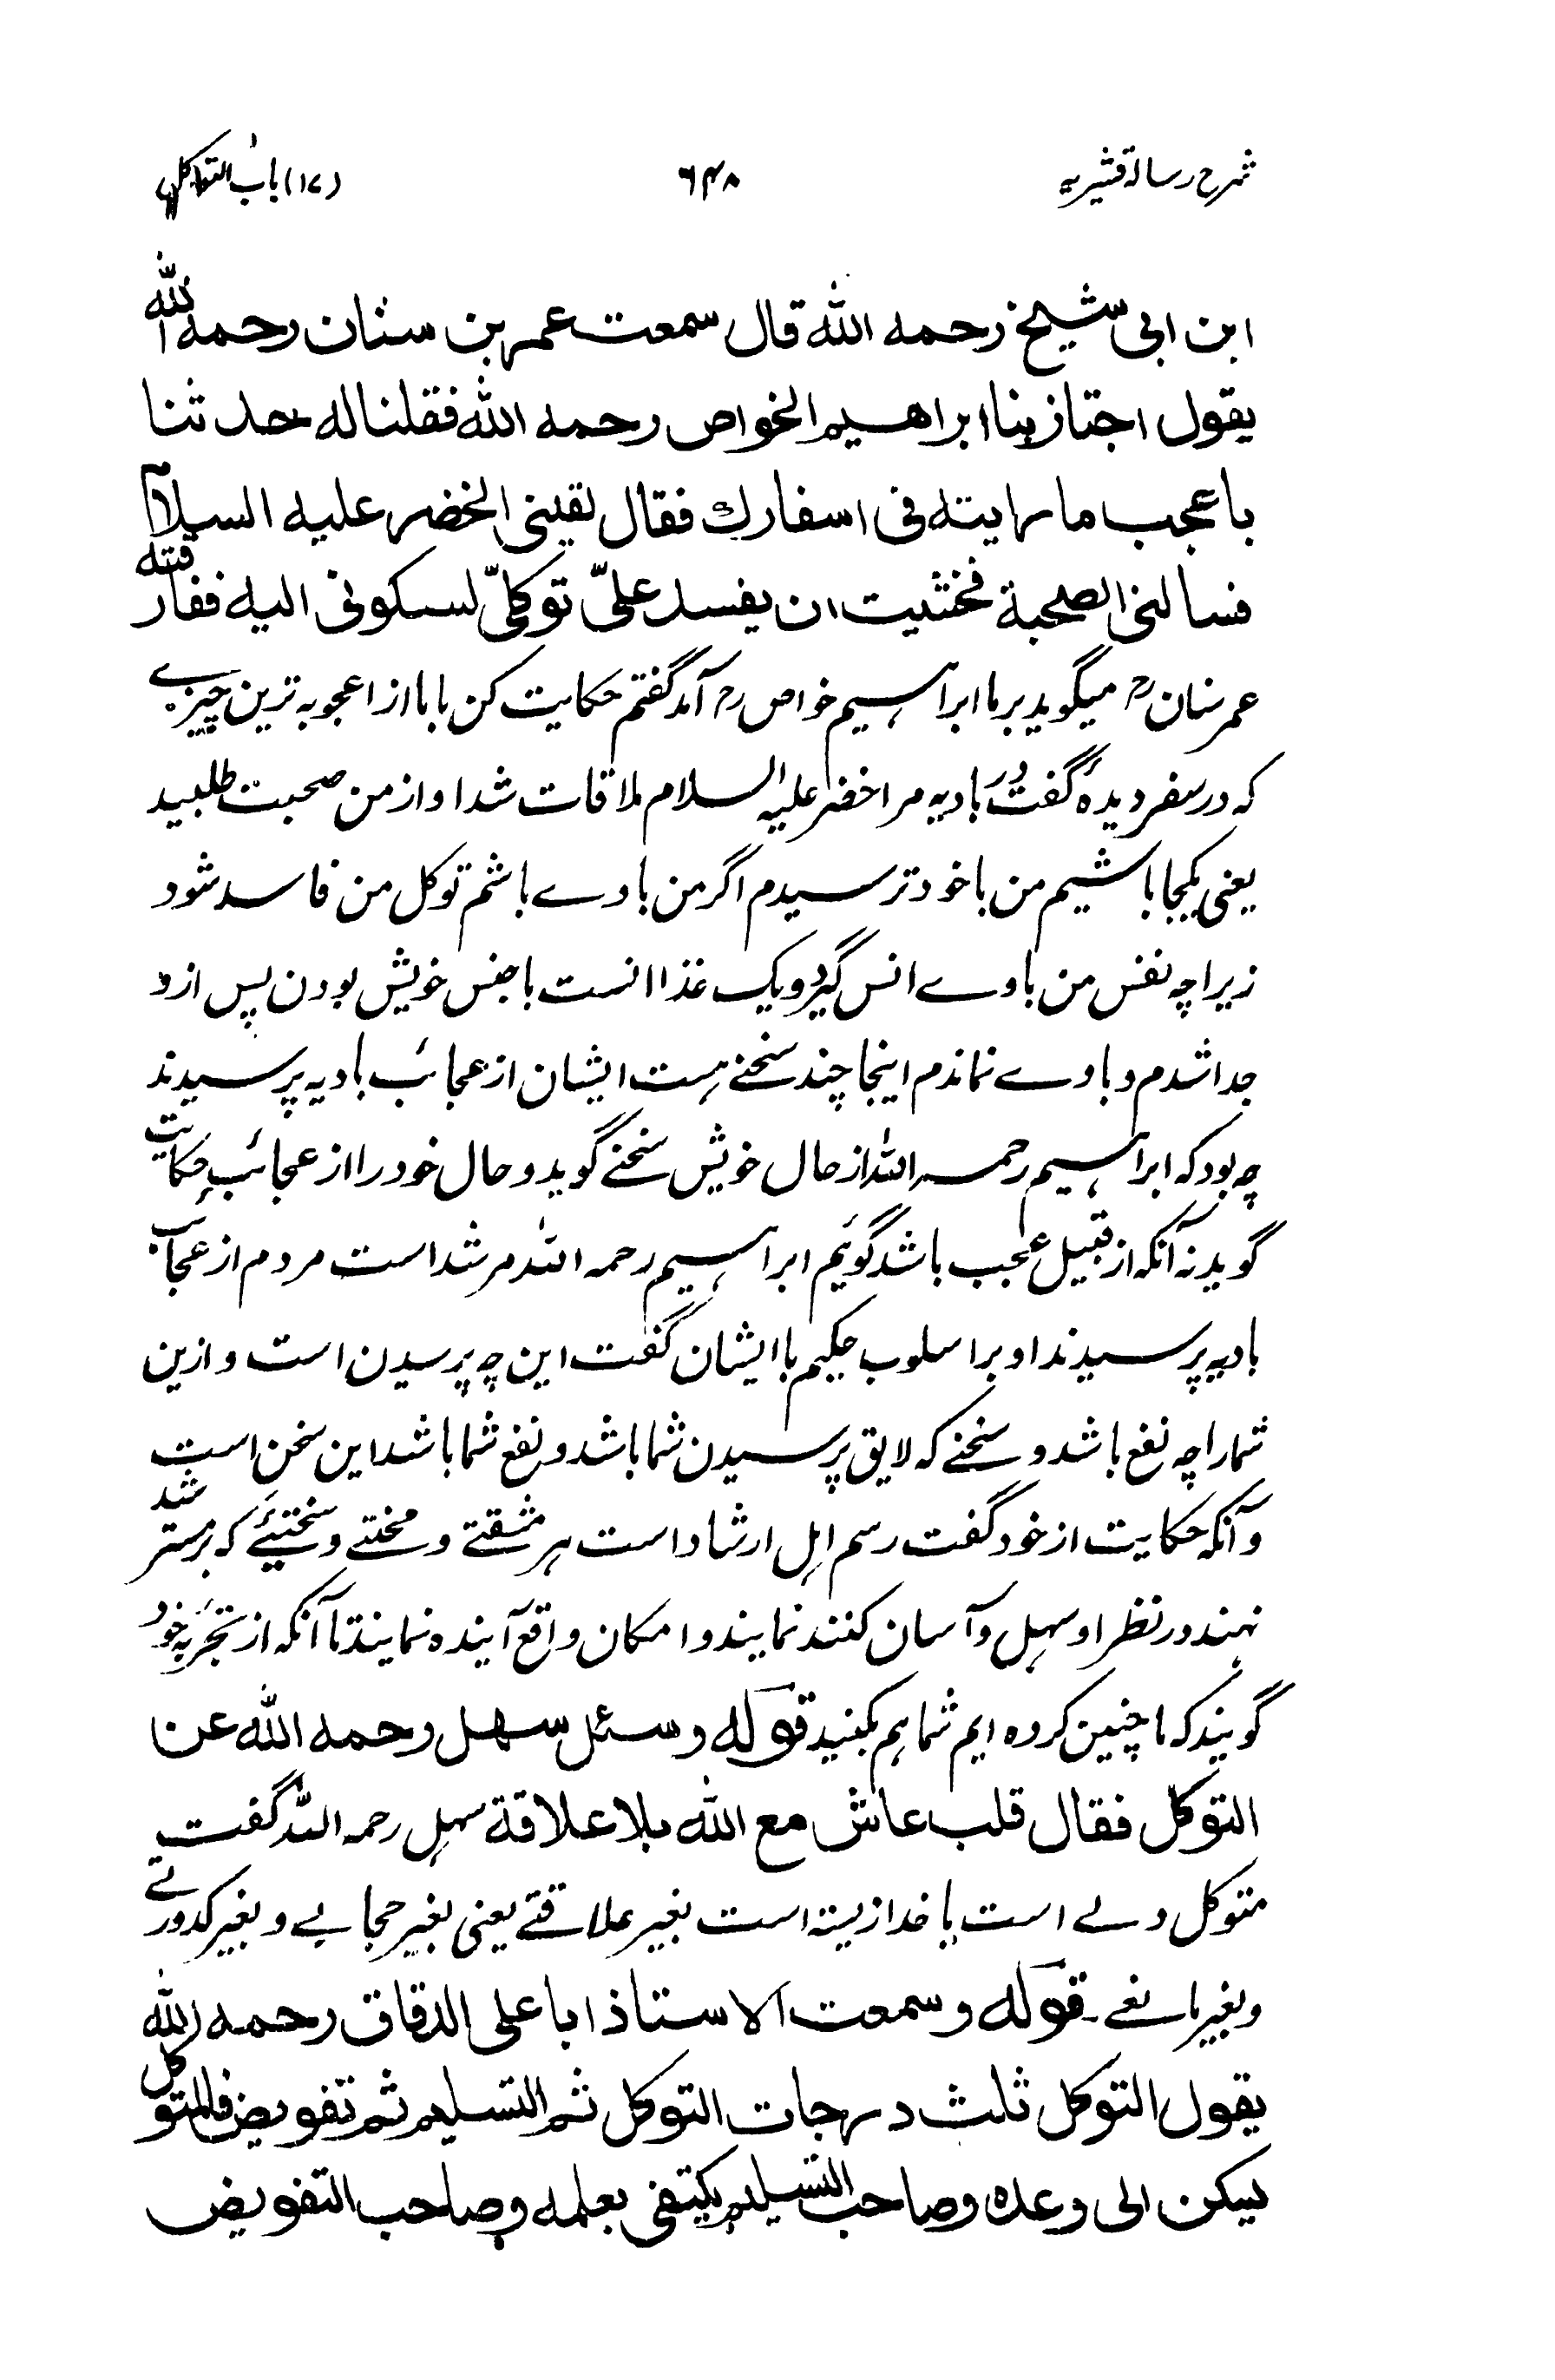 شرح رسالۂ قشیریه ۶۴۸ (۱۷) باب التوکل
ابن ابی شیخ رحمه الله قال سمعت عمر بن سنان رحمه الله
یقول اجتاز بنا ابراهیم الخواص رحمه الله فقلنا له حدثنا
باعجب ما رایته فی اسفارك فقال لقینی الخضر علیه السلام
فسالنی الصحبة فخشیت ان یفسد علیّ توکلیّ لسکونی الیه ففارقته
عمر سنان رح میگوید بر ما ابراہیم خواص رح آمد گفتم حکایت کن با ما از اعجوبه ترین چیزے
که در سفر دیدۂ گفت در بادیه مرا خضر علیه السلام ملاقات شد او از من صحبت طلبید
یعنی یکجا باشیم من با خود ترسیدم اگر من با وے باشم توکل من فاسد شود
زیرا چه نفس من با وے انس گیرد و یک غذا انست با جنس خویش بودن پس ازو
جدا شدم و با وے نماندم اینجا چند سخنے ہست ایشان از عجائب بادیه پرسیدند
چه بود که ابراہیم رحمه الله از حال خویش سخنے گوید و حال خود را از عجائب حکایت
گوید نه آنکه از قبیل عجب باشد گوئیم ابراہیم رحمه الله مرشد است مردم از عجائب
بادیه پرسیدند او بر اسلوب حکیم با ایشان گفت این چه پرسیدن است و ازین
شما را چه نفع باشد و سخنے که لایق پرسیدن شما باشد و نفع شما باشد این سخن است
و آنکه حکایت از خود گفت رسم اہل ارشاد است ہر مشقتے و محنتے و سختیئے که بر مسترشد
نہند در نظر او سہل و آسان کنند نمایند و امکان واقع آینده نمایند تا آنکه از تجربۂ خود
گویند که ما چنین کرده ایم شما ہم بکنید قوله وسئل سهل رحمه الله عن
التوکل فقال قلب عاش مع الله بلا علاقة سہل رحمه الله گفت
متوکل دلے است با خدا زیسته است بغیر علاقتے یعنی بغیر حجابے و بغیر کدورتے
و بغیر مانعے ۔ قوله وسمعت الاستاذ ابا علی الدقاق رحمه الله
یقول التوکل ثلث درجات التوکل ثم التسلیم ثم تفویض فالمتوکل
یسکن الی وعده وصاحب التسلیم یکتفی بعلمه وصاحب التفویض